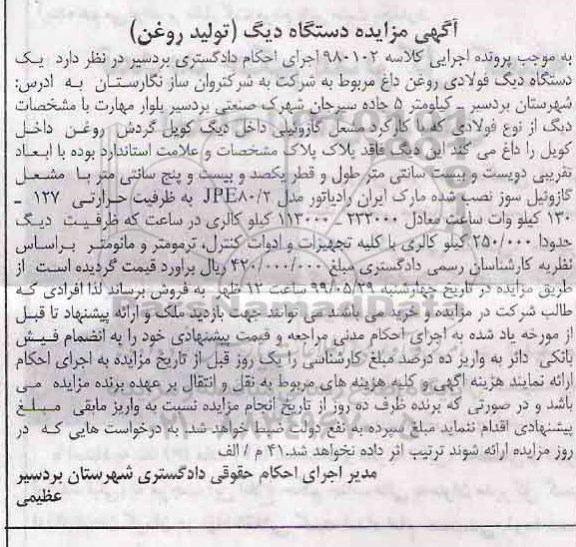 آگهی مزایده دستگاه دیگ (تولید روغن)
به موجب پرونده اجرایی کلاسه ۹۸۰۱۰۲ اجرای احکام دادگستری بردسیر در نظر دارد یک
دستگاه دیگ فولادی روغن داغ مربوط به شرکت به شرکتروان ساز نگارستان به ادرس:
شهرستان بردسیر ــ کیلومتر ۵ جاده سیرجان شهرک صنعتی بردسیر بلوار مهارت با مشخصات
دیگ از نوع فولادی که با کارکرد مشعل گازوئیلی داخل دیگ کویل گردش روغن داخل
کویل را داغ می کند این دیگ فاقد پلاک پلاک مشخصات و علامت استاندارد بوده با ابعاد
تقریبی دویست و بیست سانتی متر طول و قطر یکصد و بیست و پنج سانتی متر با مشعل
گازوئیل سوز نصب شده مارک ایران رادیاتور مدل JPE۸۰/۲ به ظرفیت حرارتی ۱۲۷ ــ
۱۳۰ کیلو وات ساعت معادل ۲۳۲۰۰۰ ــ ۱۱۳۰۰۰ کیلو کالری در ساعت که ظرفیت دیگ
حدودا ۲۵۰/۰۰۰ کیلو کالری با کلیه تجهیزات و ادوات کنترل، ترمومتر و مانومتر براساس
نظریه کارشناسان رسمی دادگستری مبلغ ۴۲۰/۰۰۰/۰۰۰ ریال براورد قیمت گردیده است از
طریق مزایده در تاریخ چهارشنبه ۹۹/۰۵/۲۹ ساعت ۱۲ ظهر به فروش برساند لذا افرادی که
طالب شرکت در مزایده و خرید می باشند می توانند جهت بازدید ملک و ارائه پیشنهاد تا قبل
از مورخه یاد شده به اجرای احکام مدنی مراجعه و قیمت پیشنهادی خود را به انضمام فیش
بانکی دائر به واریز ده درصد مبلغ کارشناسی را یک روز قبل از تاریخ مزایده به اجرای احکام
ارائه نمایند هزینه اگهی و کلیه هزینه های مربوط به نقل و انتقال بر عهده برنده مزایده می
باشد و در صورتی که برنده ظرف ده روز از تاریخ انجام مزایده نسبت به واریز مابقی مبلغ
پیشنهادی اقدام ننماید مبلغ سپرده به نفع دولت ضبط خواهد شد. به درخواست هایی که در
روز مزایده ارائه شوند ترتیب اثر داده نخواهد شد. ۴۱ م / الف
مدیر اجرای احکام حقوقی دادگستری شهرستان بردسیر
عظیمی